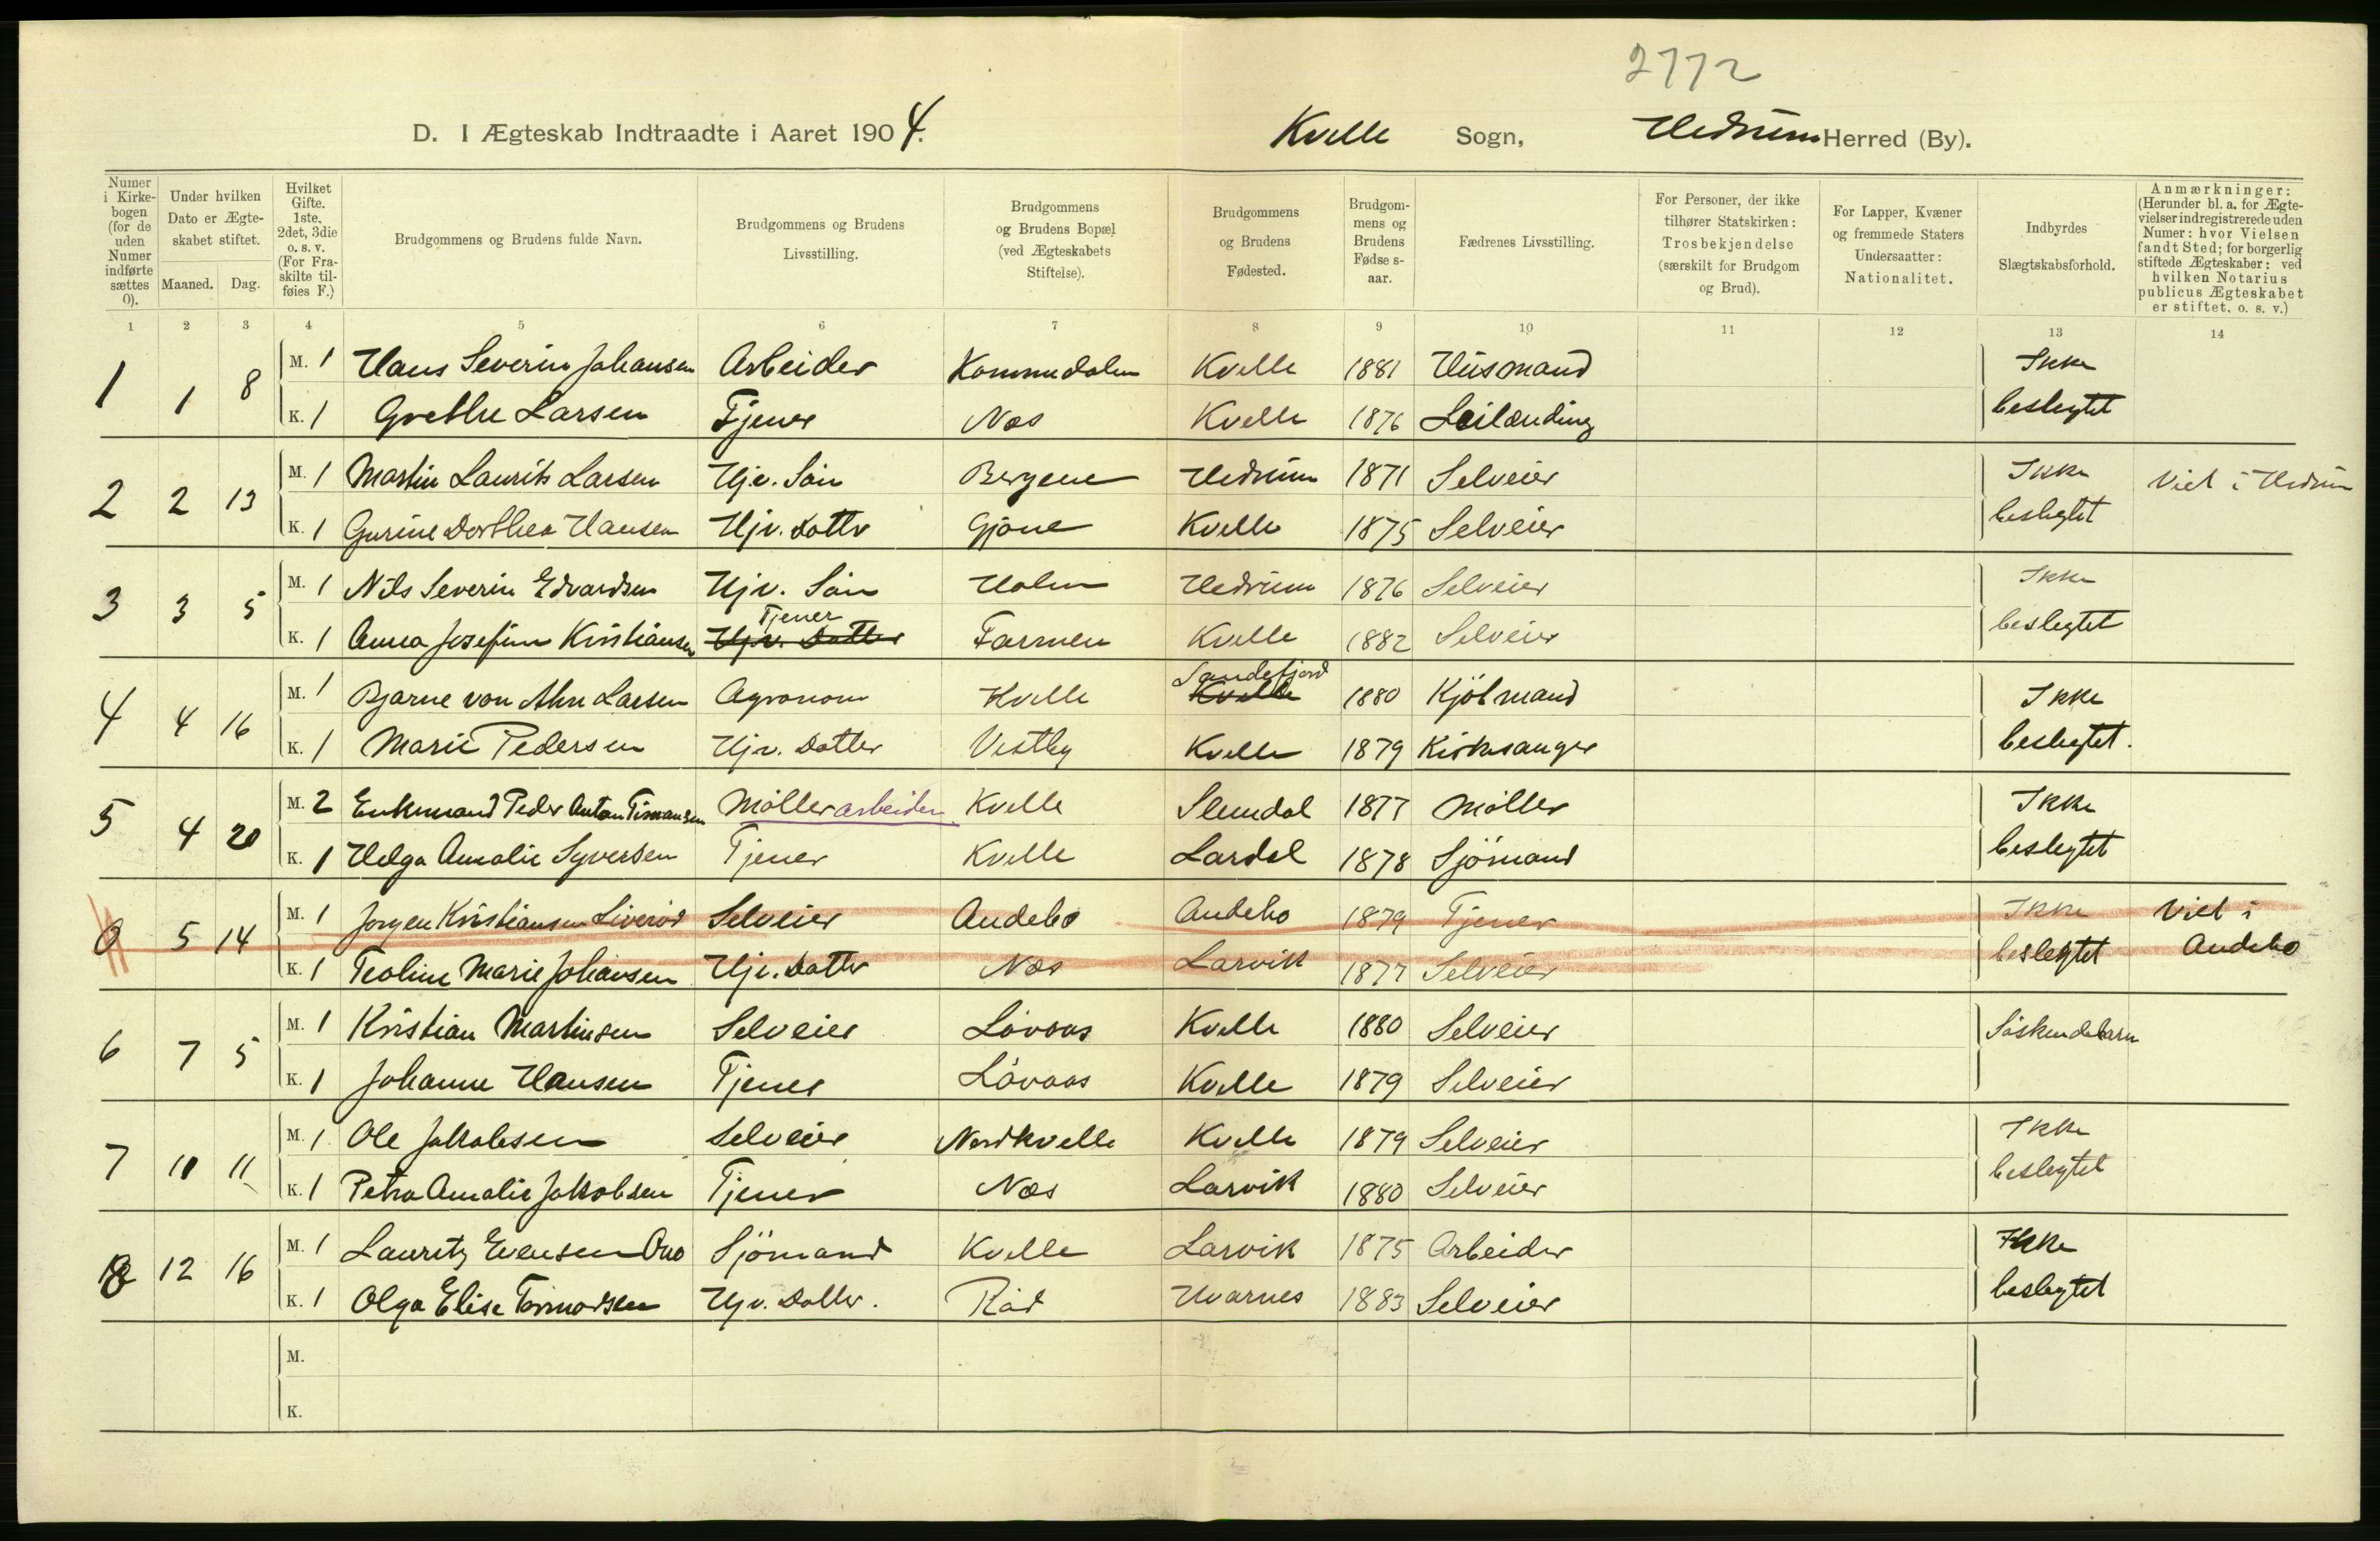 2772
D. I Ægteskab Indtraadte i Aaret 1904.
Kvelle Sogn, Hedrum Herred (By).
Numer i Kirkebogen (for de uden Numer indførte sættes 0).
Under hvilken Dato er Ægteskabet stiftet.
Maaned. Dag.
Hvilket Gifte. 1ste, 2det, 3die o. s. v. (For Fraskilte tilføies F.)
Brudgommens og Brudens fulde Navn.
Brudgommens og Brudens Livsstilling.
Brudgommens og Brudens Bopæl (ved Ægteskabets Stiftelse).
Brudgommens og Brudens Fødested.
Brudgommens og Brudens Fødse s-aar.
Fædrenes Livsstilling.
For Personer, der ikke tilhører Statskirken: Trosbekjendelse (særskilt for Brudgom og Brud).
For Lapper, Kvæner og fremmede Staters Undersaatter: Nationalitet.
Indbyrdes Slægtskabsforhold.
Anmærkninger: (Herunder bl. a. for Ægtevielser indregistrerede uden Numer: hvor Vielsen fandt Sted; for borgerlig stiftede Ægteskaber: ved hvilken Notarius publicus Ægteskabet er stiftet, o. s. v.)
1 2 3 4 5 6 7 8 9 10 11 12 13 14
1 1 8 M. 1 Hans Severin Johansen Arbeider Kvelle 1881 Husmand Ikke
K. 1 Grethe Larsen Tjener Næs Kvelle 1876 Leilænding beslegtet
2 2 13 M. 1 Martin Laurits Larsen Hjv. Søn Bergene Hedrum 1871 Selveier Ikke Viet i Hedrum
K. 1 Gurine Dorthea Hansen Hjv. Datter Gjøne Kvelle 1875 Selveier beslegtet
3 3 5 M. 1 Nils Severin Edvardsen Hjv. Søn Holm Hedrum 1876 Selveier Ikke
Tjener
K. 1 Anna Josefine Kristiansen Hjv. Datter Farmen Kvelle 1882 Selveier beslegtet
Sandefjord
4 4 16 M. 1 Bjarne von Ahn Larsen Agronom Kvelle Kvelle 1880 Kjøbmand Ikke
K. 1 Marie Pedersen Hjv. Datter Vestby Kvelle 1879 Kirkesanger beslegtet.
5 4 20 M. 2 Enkemand Peder Anton Møllerarbeider Kvelle Slemdal 1877 Møller Ikke
K. 1 Helga Amalie Syversen Tjener Kvelle Lardal 1878 Sjømand beslegtet
0 5 14 M. 1 Jørgen Kristiansen Liverød Selveier Andebo Andebo 1879 Tjener Ikke Viet i
K. 1 Teoline Marie Johansen Hjv. Datter Næs Larvik 1877 Selveier beslegtet Andebo
6 7 5 M. 1 Kristian Martinsen Selveier Løvaas Kvelle 1880 Selveier Søskendebarn
K. 1 Johanne Hansen Tjener Løvaas Kvelle 1879 Selveier
7 10 11 M. 1 Ole Jakobsen Selveier Nordkvelle Kvelle 1879 Selveier Ikke
K. 1 Petra Amalie Jakobsen Tjener Næs Larvik 1880 Selveier beslegtet
8 12 16 M. 1 Lauritz Evensen Sjømand Kvelle Larvik 1875 Arbeider Ikke
K. 1 Olga Elise Tormodsen Hjv. Datter. Rød Hvarnes 1883 Selveier beslegtet
M.
K.